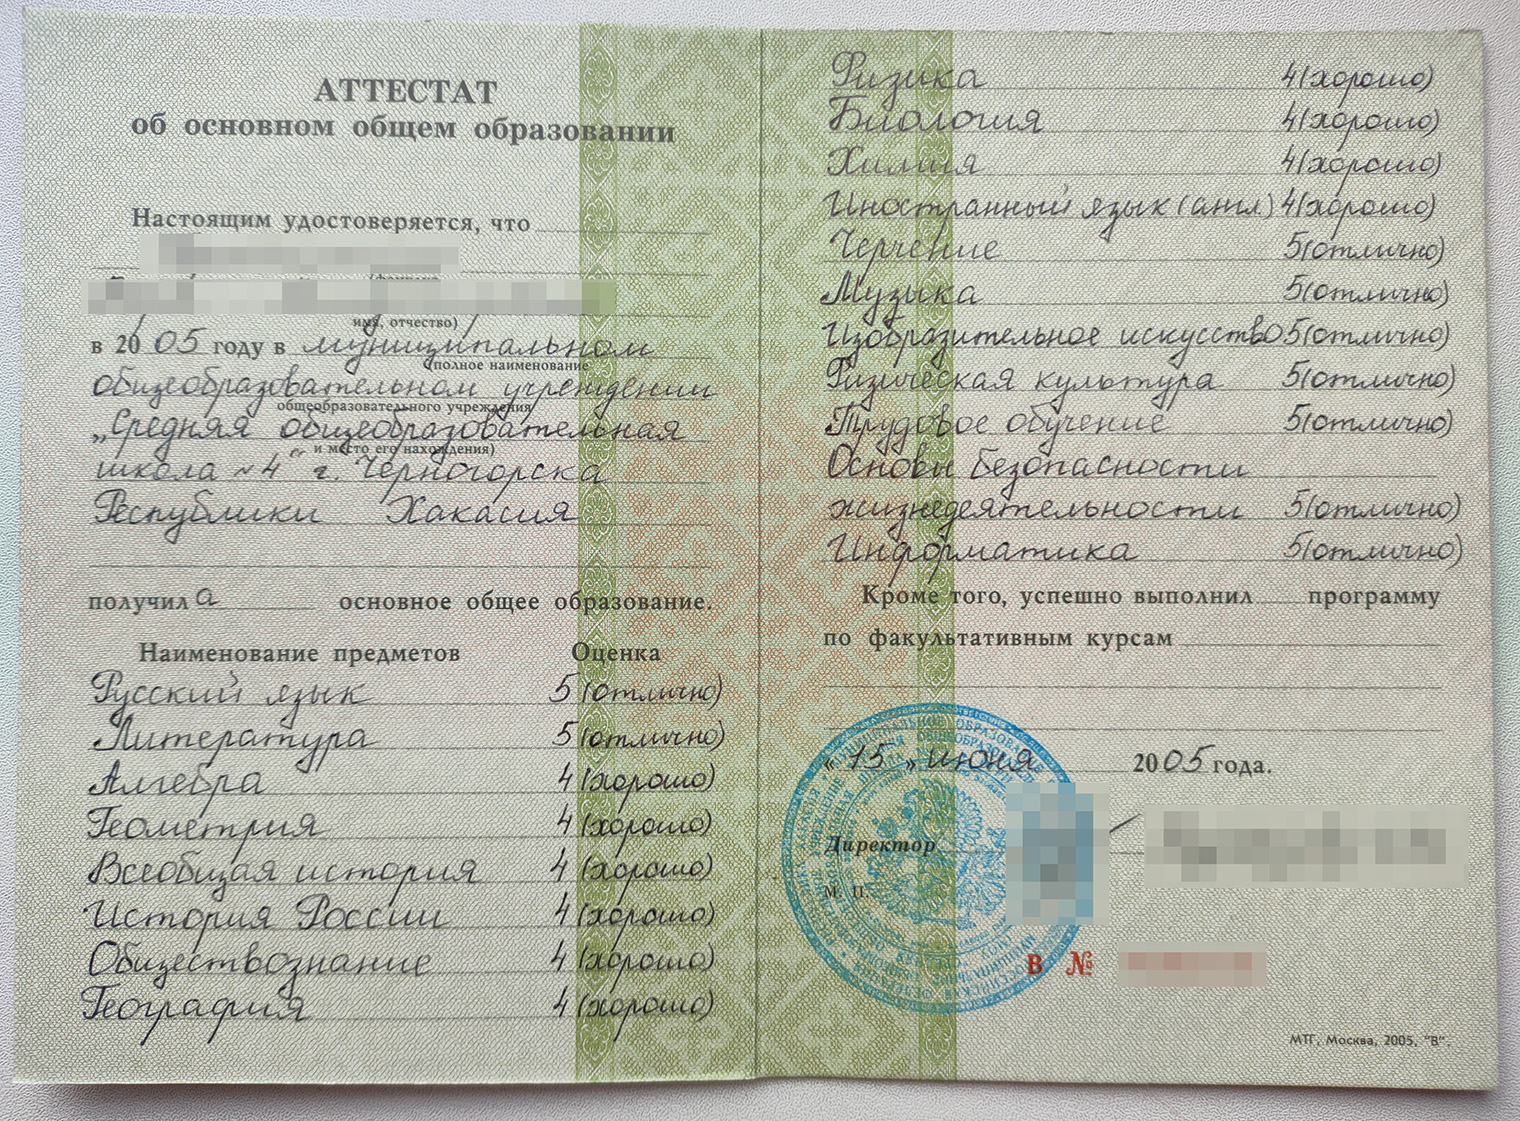 АТТЕСТАТ
об основном общем образовании
Настоящим удостоверяется, что
имя, отчество)
в 2005 году в муниципальном
(полное наименование
общеобразовательном учреждении
общеобразовательного учреждения
„Средняя общеобразовательная
и место его нахождения)
школа №4" г. Черногорска
Республики Хакасия
получила основное общее образование.
Наименование предметов Оценка
Русский язык 5 (отлично)
Литература 5 (отлично)
Алгебра 4 (хорошо)
Геометрия 4 (хорошо)
Всеобщая история 4 (хорошо)
История России 4 (хорошо)
Обществознание 4 (хорошо)
География 4 (хорошо)
Физика 4 (хорошо)
Биология 4 (хорошо)
Химия 4 (хорошо)
Иностранный язык (англ.) 4 (хорошо)
Черчение 5 (отлично)
Музыка 5 (отлично)
Изобразительное искусство 5 (отлично)
Физическая культура 5 (отлично)
Трудовое обучение 5 (отлично)
Основы безопасности
жизнедеятельности 5 (отлично)
Информатика 5 (отлично)
Кроме того, успешно выполнил программу
по факультативным курсам
« 15 » июня 2005 года.
Директор
М. П.
В №
МТГ, Москва, 2005, "В".